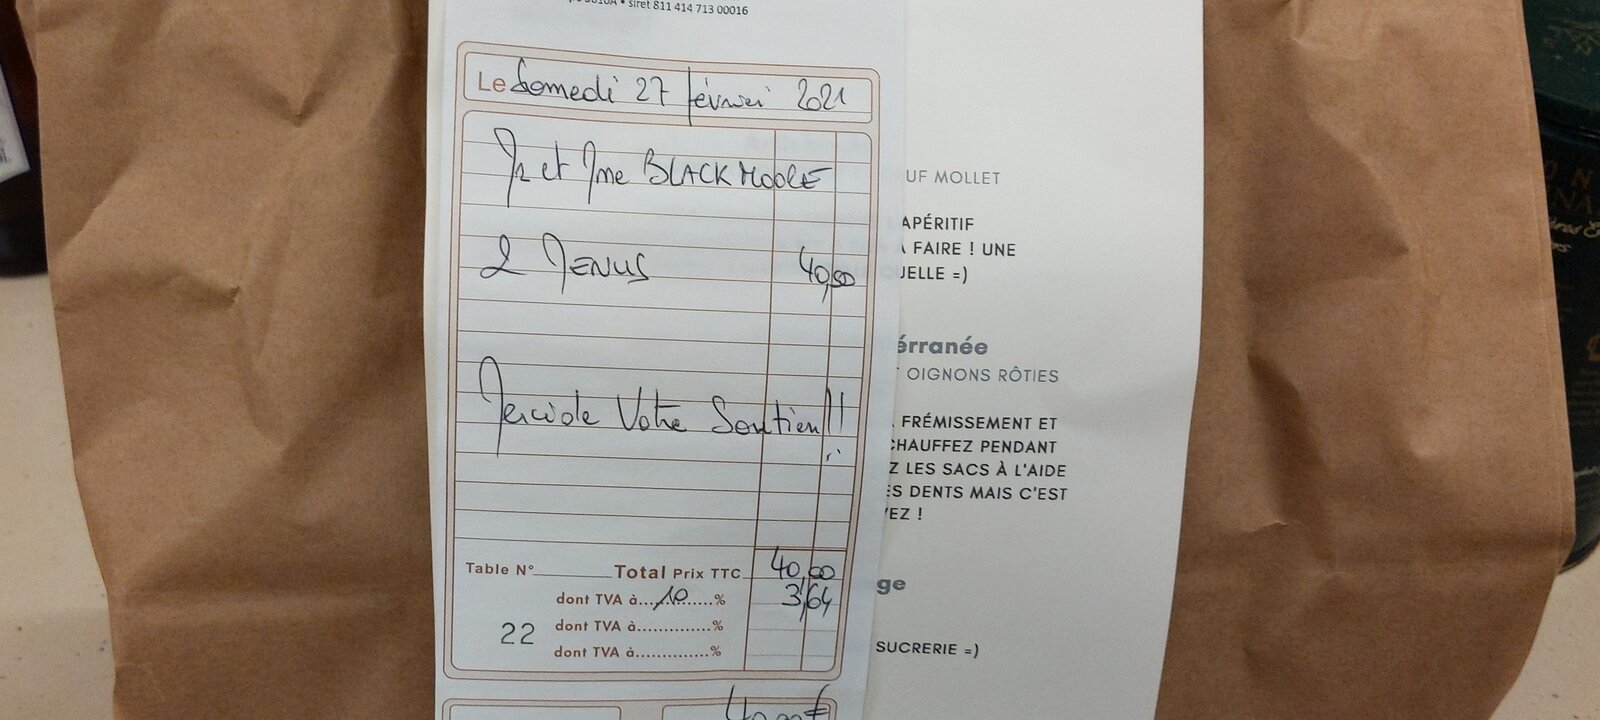 siret 811 414 713 00016
Le Samedi 27 février 2021
Mr et Mme BLACKMOORE
2 MENUS 40,00
Merci de Votre Soutien!!
Table N° Total Prix TTC 40,00
dont TVA à 10 % 3,64
dont TVA à.............%
22
dont TVA à.............%
40,00€
UF MOLLET
APÉRITIF
À FAIRE ! UNE
UELLE =)
érranée
T OIGNONS RÔTIES
FRÉMISSEMENT ET
CHAUFFEZ PENDANT
Z LES SACS À L'AIDE
ES DENTS MAIS C'EST
VEZ !
ge
SUCRERIE =)